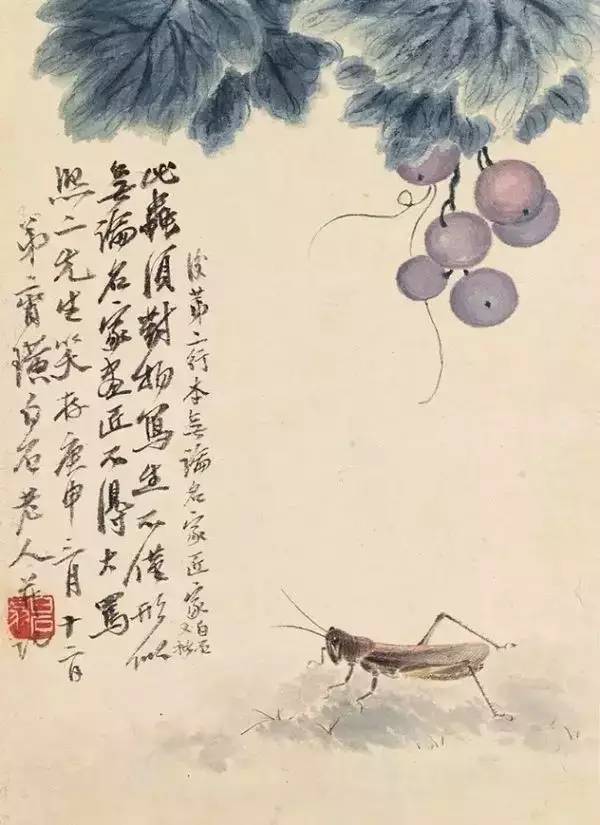 後第二行本無論名家匠家白石又
此蟲須對物寫生不僅形似
無論名家畫匠不得大罵
熙二先生笑存庚申三月十二日
弟齊璜白石老人并記
白石翁